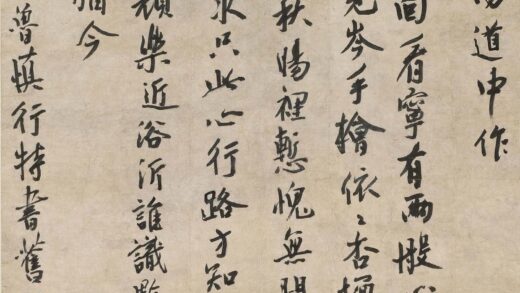 道中作
看寧有兩般
岑手檜依〻杏
秋暘裡慙愧無
求只此心行路方知
樂近浴沂誰識
今
魯慎行特書舊